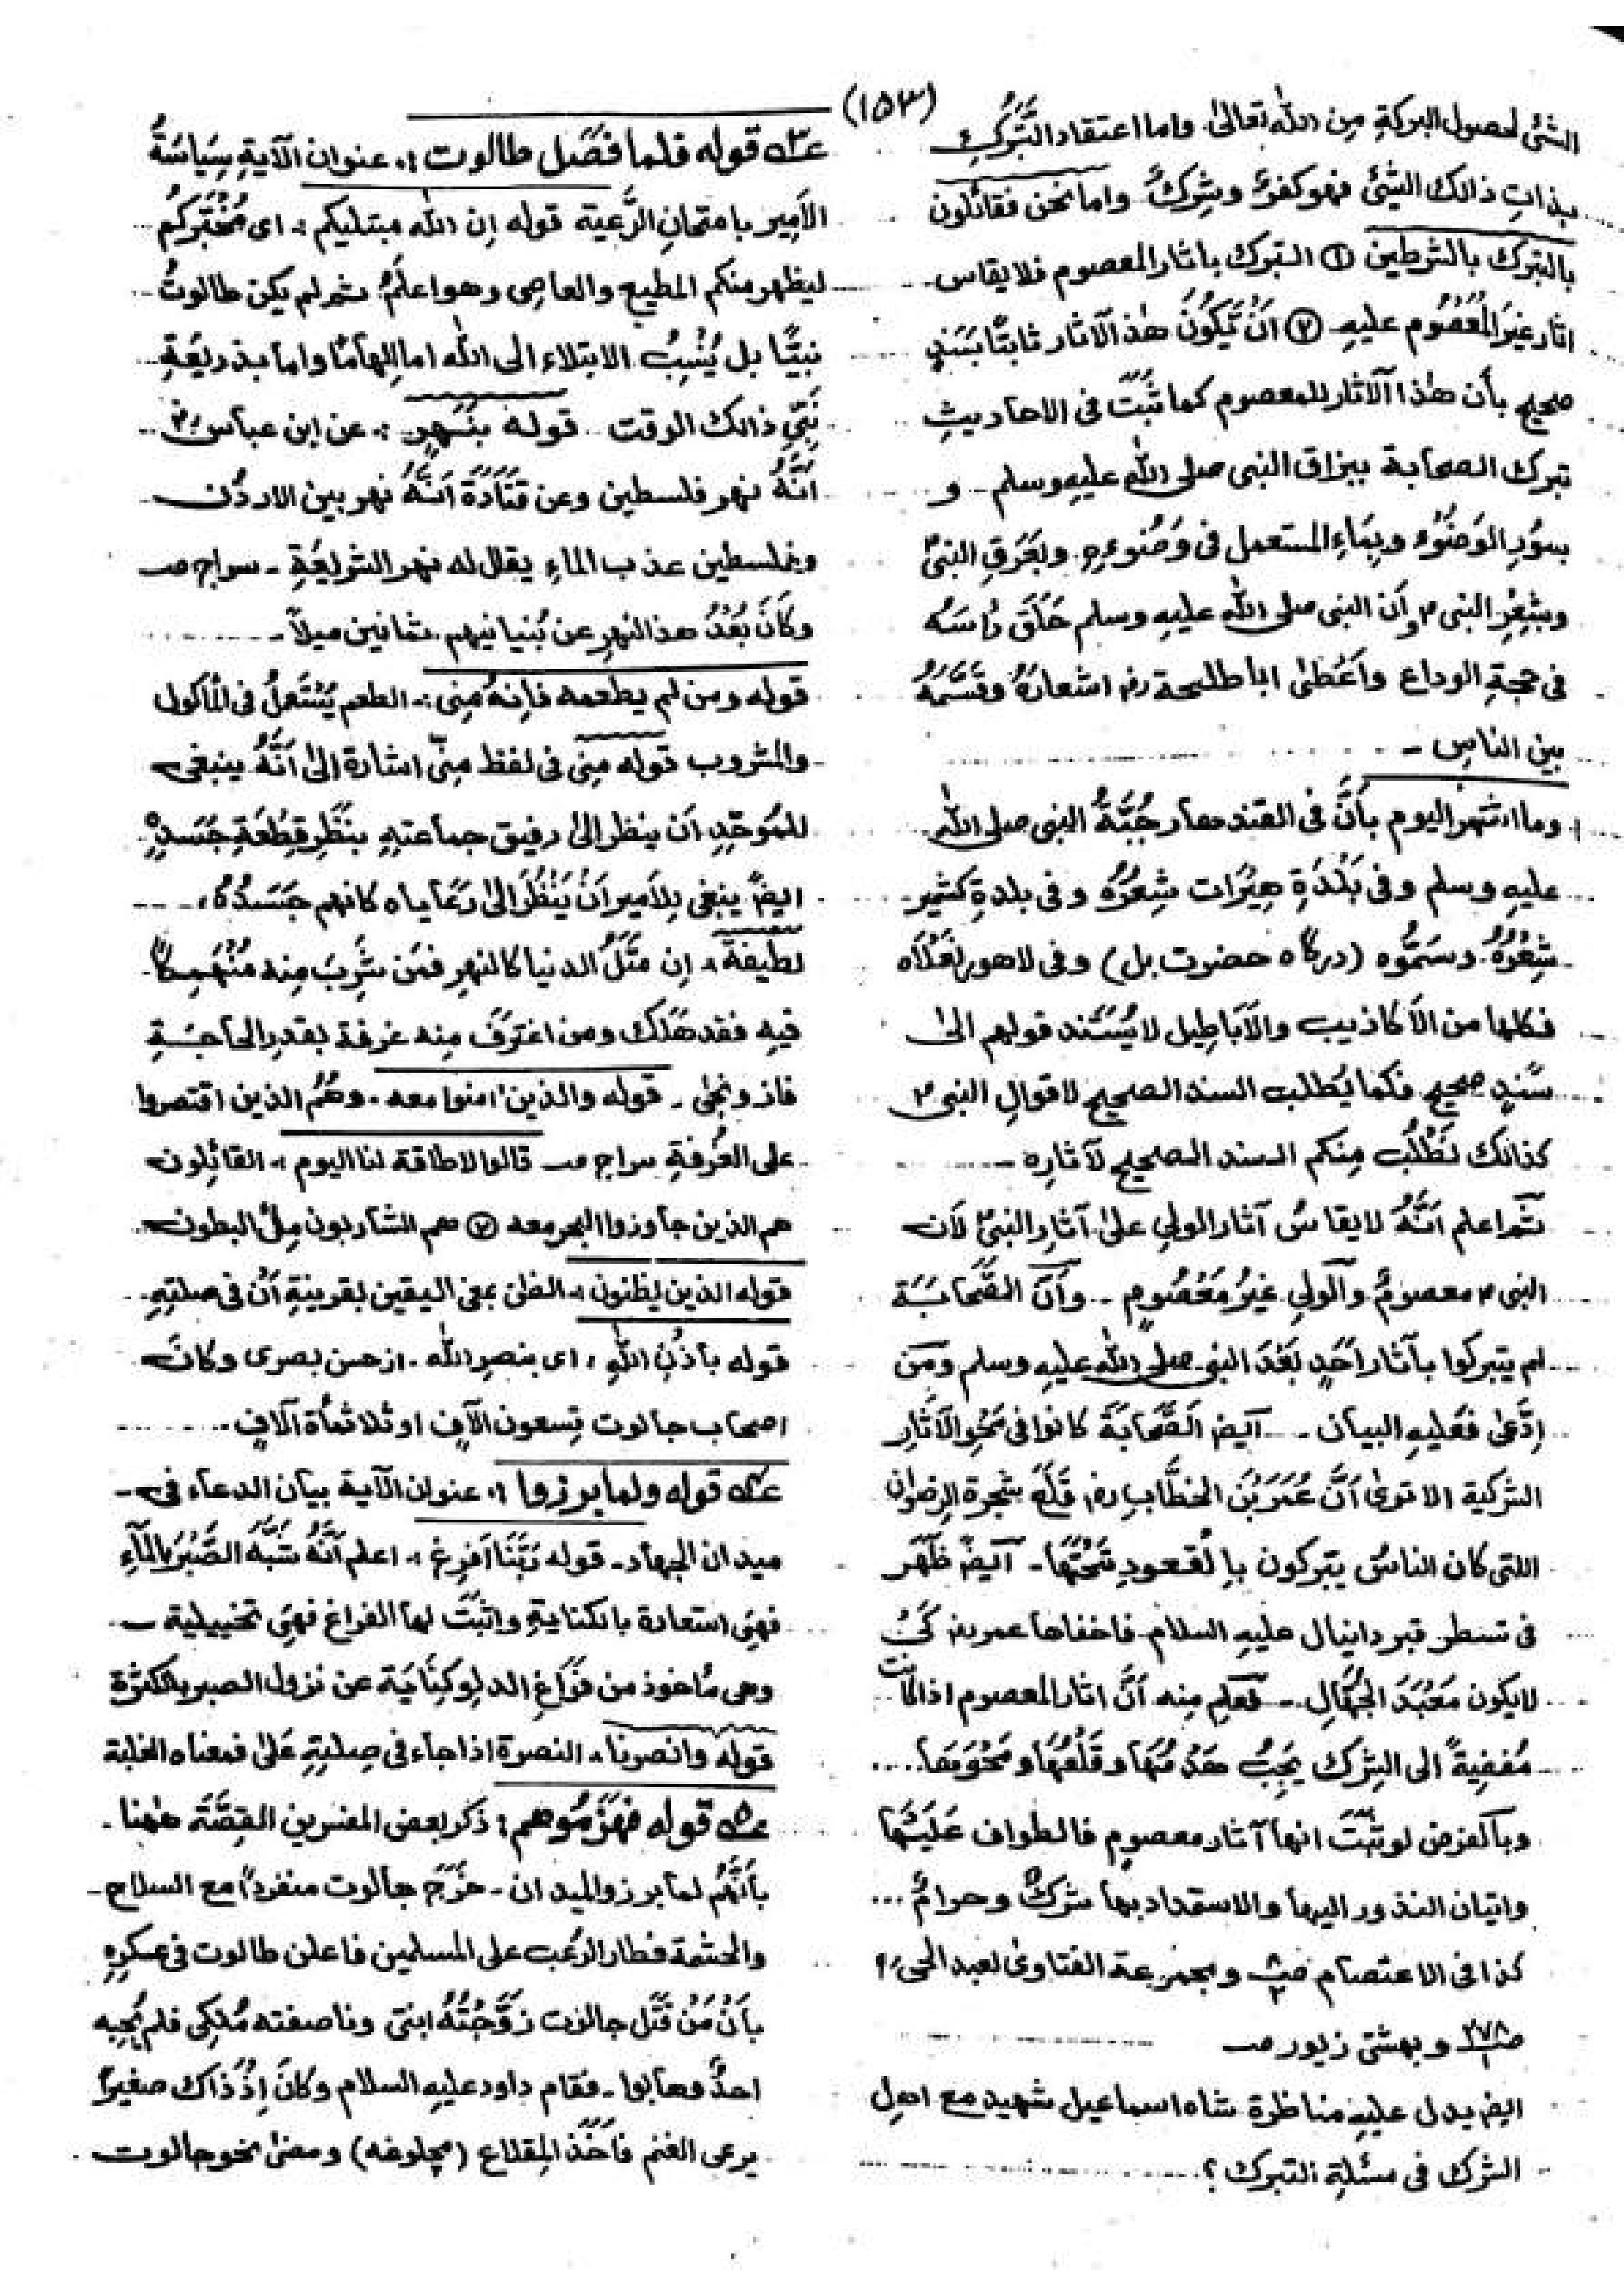 (١٥٣)
الشئ لحصول البركةِ مِن الله تعالىٰ واما اعتقاد التَّبَرُّكِ
بذاتِ ذالك الشيْئ فهو كفرٌ وشِركٌ واما نحن فقائلون
بالتبرك بالشرطين ① التبرك باثار المعصوم فلا يقاس
اثار غيرَ المَعْصُوم عليهِ ② اَنْ تَكُوْنَ هٰذ الآثار ثابتًا بسَندٍ
صحيحٍ بأن هٰذا الآثار للمعصوم كما ثَبَتَ فى الاحاديثِ
تبرك الصحابة ببزاق النبى صلى الله عليهِ وسلم و
بسوْرِ الوَضُوْءِ وبِمَاءِ المستعمل فى وَضُوءِهِ وبِعَرَقِ النبىؐ
وبشِعْرِ النبى ؐ وأن النبى صلى الله عليهِ وسلم حَلَقَ رأسَهُ
فى حجةِ الوداع واَعْطىٰ ابا طلحة رض اشعارَهُ وقَسَّمَهُ
بين الناسِ
وما اشتهر اليوم بأنَّ فى القندهار جُبَّةُ النبى صلى الله
عليهِ وسلم وفى بَلْدَةِ هِيْرَات شِعْرُهُ وفى بلدةِ كشمير
شِعْرُهُ وسَمَّوْه (درگاه حضرت بل) وفى لاهور نَعْلاَه
فكلها من الأكاذيب والأبَاطِيل لا يُسْتَند قولهم الىٰ
سَنَدٍ صحيحٍ فكما يُطلب السند الصحيح لاقوالِ النبى ؐ
كذالك نَطْلُب مِنكم السند الصحيح لآثاره
ثمَّ اعلم اَنَّهُ لا يقاسُ آثار الولي علىٰ آثارِ النبىؐ لاَن
النبى ؐ معصومٌ والولي غيرُ مَعْصُومٍ وأنَّ الصَّحَابَةَ
لم يتبركوا بآثار اَحَدٍ بَعْدَ النبى صلى الله عليهِ وسلم ومَن
اِدَّعىٰ فعَليهِ البيان ايضا الصَّحَابَةَ كانوا فى مَحْوِ الآثَارِ
الشركية الا ترىٰ اَنَّ عُمَرَ بْنَ الخطَّاب رض قَلَعَ شجرة الرضوان
اللتى كان الناسُ يتبركون بالْقعودِ تَحْتَهَا ايضاً ظَهَر
فى تسطر قبر دانيال عليهِ السلام فاخفاها عمر رض كَىْ
لايكون مَعْبَدَ الجُهَّالِ فعُلِم مِنه اَنَّ اثار المعصوم اذا كانت
مُفضِيةً الى الشِرك يَجِبُ هَدْمُهَا وقَلْعُهَا ومَحْوُهَا
وبالفرض لو ثبَتَ انها آثار معصومٍ فالطواف عَلَيْهَا
واتيان النذور اليها والاستمداد بها شركٌ وحرامٌ
كذا فى الاعتصام ومجموعة الفتاوىٰ لعبد الحئ
وبهشتى زيور صـ
ايضا يدل عليهِ مناظرة شاه اسماعيل شهيد مع اهل
الشرك فى مسئلة التبرك ؟
قوله فلما فَصَل طالوت :. عنوان الآيةِ سِيَاسَةُ
الاَمِير بامتحانِ الرَّعية قوله اِن الله مبتليكم :. اى مُخْتَبِركُم
ليظهر منكم المطيع والعاصى وهو اعلمُ ثم لم يكن طالوتُ
نبيًّا بل يُنْسبُ الابتلاء الى الله اما اِلهَامًا واما بذريعَةِ
نَبِيِّ ذالك الوقت قوله بنَهَرٍ :. عن ابن عباس رض
اَنَّهُ نهر فلسطين وعن قتَادَة اَنَّهُ نهر بين الاردُن
وفلسطين عذب الماءِ يقال له نهر الشريعَةِ ـ سراج صـ
وكاَنَ بُعْدُ هذا النهرِ عن بُنيانِهِم ثمانين ميلاً
قوله ومن لم يطعمه فاِنهُ مِنى :. الطعم يُسْتَعملُ فى المأكول
والمشروب قوله مِنى فى لفظ مِنّى اشارة الىٰ اَنَّهُ ينبغى
للمُوَحِّدِ اَن ينظر الىٰ رفيق جماعتهِ بنَظَرِ قِطْعَةِ جَسَدِهِ
ايضاً ينبغى لِلاَمير اَنْ يَنْظُرَ الىٰ رَعَاياه كانهم جَسَدُهُ
لطيفة ، اِن مَثَلَ الدنيا كالنهرِ فمَن شرِبَ مِنه مُنْهَمِكاً
فيهِ فقد هَلَك ومن اغترَفَ مِنه غرفة بقدرِ الحاجَةِ
فاز ونجىٰ ـ قوله والذين اٰمنوا معه ـ وهُم الذين اقتصروا
على الغُرفةِ سراج صـ قالوا لاطاقة لنا اليوم :. القائِلون
هم الذين جاوزوا البحر معه ② هم الشاربون مِلأَ البطون
قوله الذين يظنون :. الظن بمعنى اليقين بقرينةِ اَنْ فى صلتِهِ
قوله بأذْنِ اللهِ ، اى بنصرِ الله ـ ازحسن بصرى وكان
اصحاب جالوت تِسعون الآفٍ او ثلاثمأة آلافٍ
قوله ولما برزوا :. عنوان الآية بيان الدعاء فى
ميدان الجهاد ـ قوله رَبَّنَا اَفرِغ :. اعلم اَنَّهُ شَبَّهَ الصَّبْرَ بالمآءِ
فهِىَ استعارة بالكنايةِ واثبَتَ لها الفراغ فهِىَ تخييلية
وهى مأخوذ من فَرَاغِ الدلوِ كِنَايَة عن نزول الصبر بالكثرةِ
قوله وانصرنا ، النصرة اذا جاء فى صِلتِهِ عَلىٰ فمعناه الغلبة
قوله فهَزَمُوهم : ذكر بعض المفسرين القِصَّةَ هٰهنا
بأنَّهُم لما برزوا لميدان ـ خَرَجَ جالوت منفرداً مع السلاح
والحشمة فطار الرُعب على المسلمين فاعلن طالوت فى عسكرِهِ
بأنْ مَنْ قتَل جالوت زَوَّجْتُهُ ابنتى وناصفته مُلكِى فلم يُجِبه
احدٌ وهابوا ـ فقام داود عليهِ السلام وكانَ اِذْ ذاك صغيراً
يرعى الغنم فأخَذ المِقلاع (مچلوغه) ومضىٰ نحو جالوت